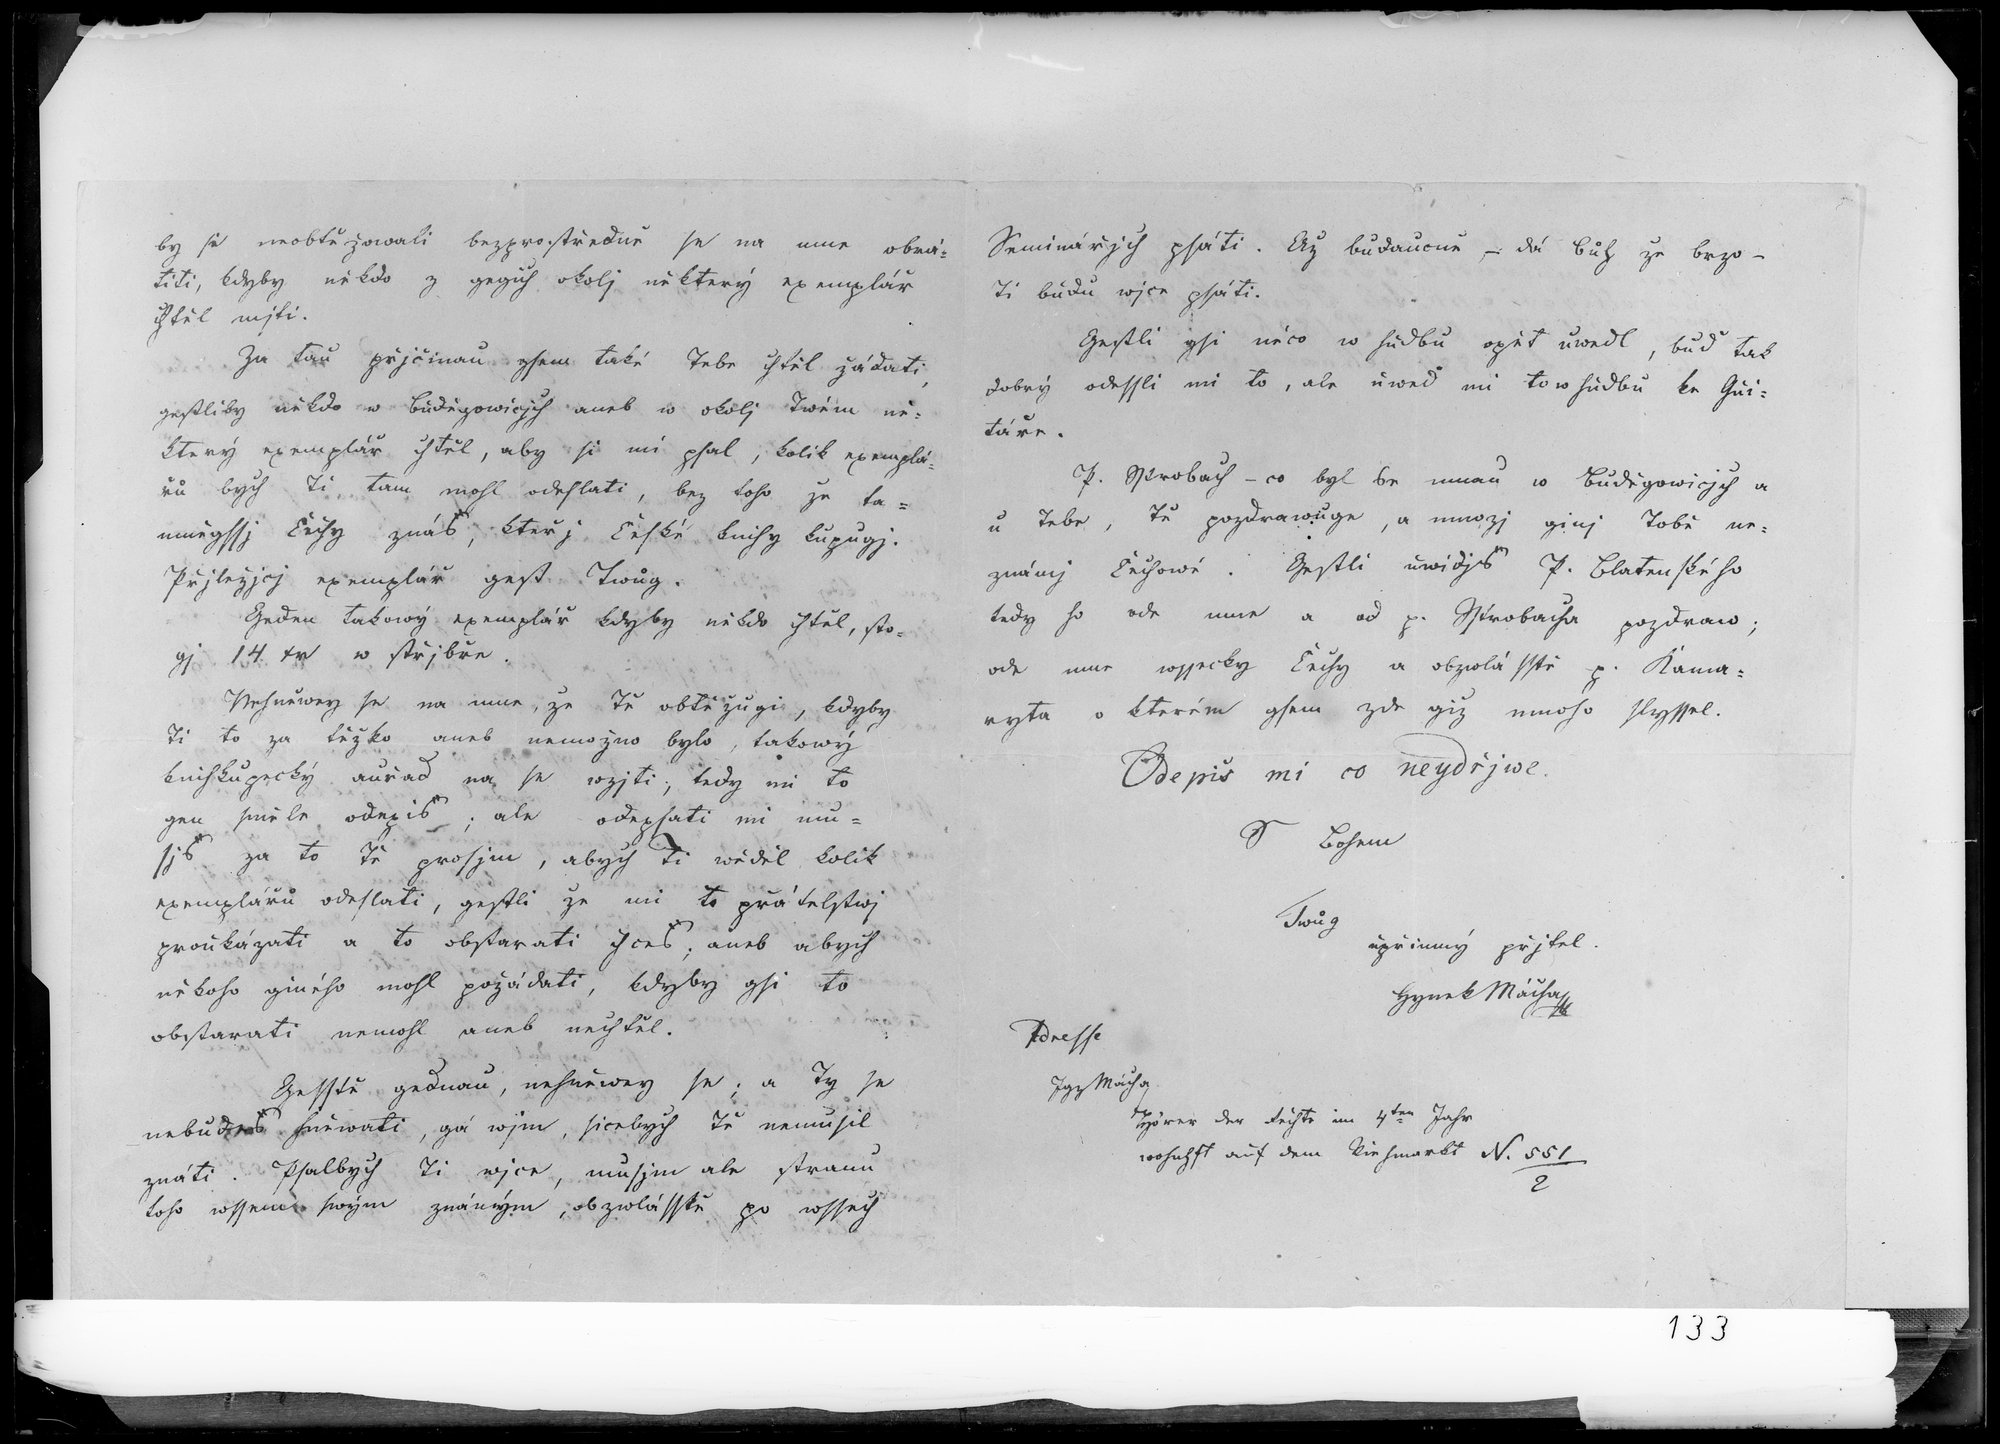 by se neobtěžowali bezprostředně se na mne obrá=
titi, kdyby někdo z gegich okolj některý exemplář
chtěl mjti.
Za tau přjčinau gsem také Tebe chtěl žádati,
gestliby někdo w Buděgowicjch aneb w okolj Twém ně=
který exemplář chtěl, aby si mi psal, kolik exemplá=
řů bych Ti tam mohl odeslati, bez toho že ta=
mněgssj Čechy znáš, kteřj České knihy kupugj.
Přjležjcj exemplář gest Twůg.
Geden takowý exemplář kdyby někdo chtěl, sto=
gj 14 kr w střjbře.
Nehněwey se na mne, že Tě obtěžugi, kdyby
Ti to za těžko aneb nemožno bylo, takowý
knihkupecký auřad na se wzjti; tedy mi to
gen směle odepiš; ale odepsati mi mu=
sjš za to Tě prosjm, abych Ti wěděl kolik
exemplářů odeslati, gestli že mi to přátelstwj
proukázati a to obstarati chceš; aneb abych
někoho giného mohl požádati, kdyby gsi to
obstarati nemohl aneb nechtěl.
Gesstě gednau, nehněwey se; a Ty se
nebudeš hněwati, gá wjm, sicebych Tě nemusil
znáti. Psalbych Ti wjce, musjm ale stranu
toho wssem swým známým, obzwlásstě po wssech
Seminářjch psáti. Až budaucně – dá Bůh že brzo –
Ti budu wjce psáti.
Gestli gsi něco w hudbu opět uwedl, buď tak
dobrý odessli mi to, ale uweď mi to w hudbu ke Gui=
táře.
P. Strobach – co byl se mnau w Buděgowicjch a
u Tebe, Tě pozdrawuge, a mnozj ginj Tobě ne=
známj Čechowé. Gestli uwidjš P. Blatenského
tedy ho ode mne a od p. Strobacha pozdraw;
ode mne wssecky Čechy a obzwlásstě p. Kama=
ryta o kterém gsem zde giž mnoho slyssel.
Odepiš mi co neydřjwe.
S Bohem
Twůg
upřimný přjtel.
Hynek Mácha
Adresse
Igz Mácha
Hörer der Rechte im 4ten Jahr
wohnhft auf dem Viehmarkt N. 551/2
133